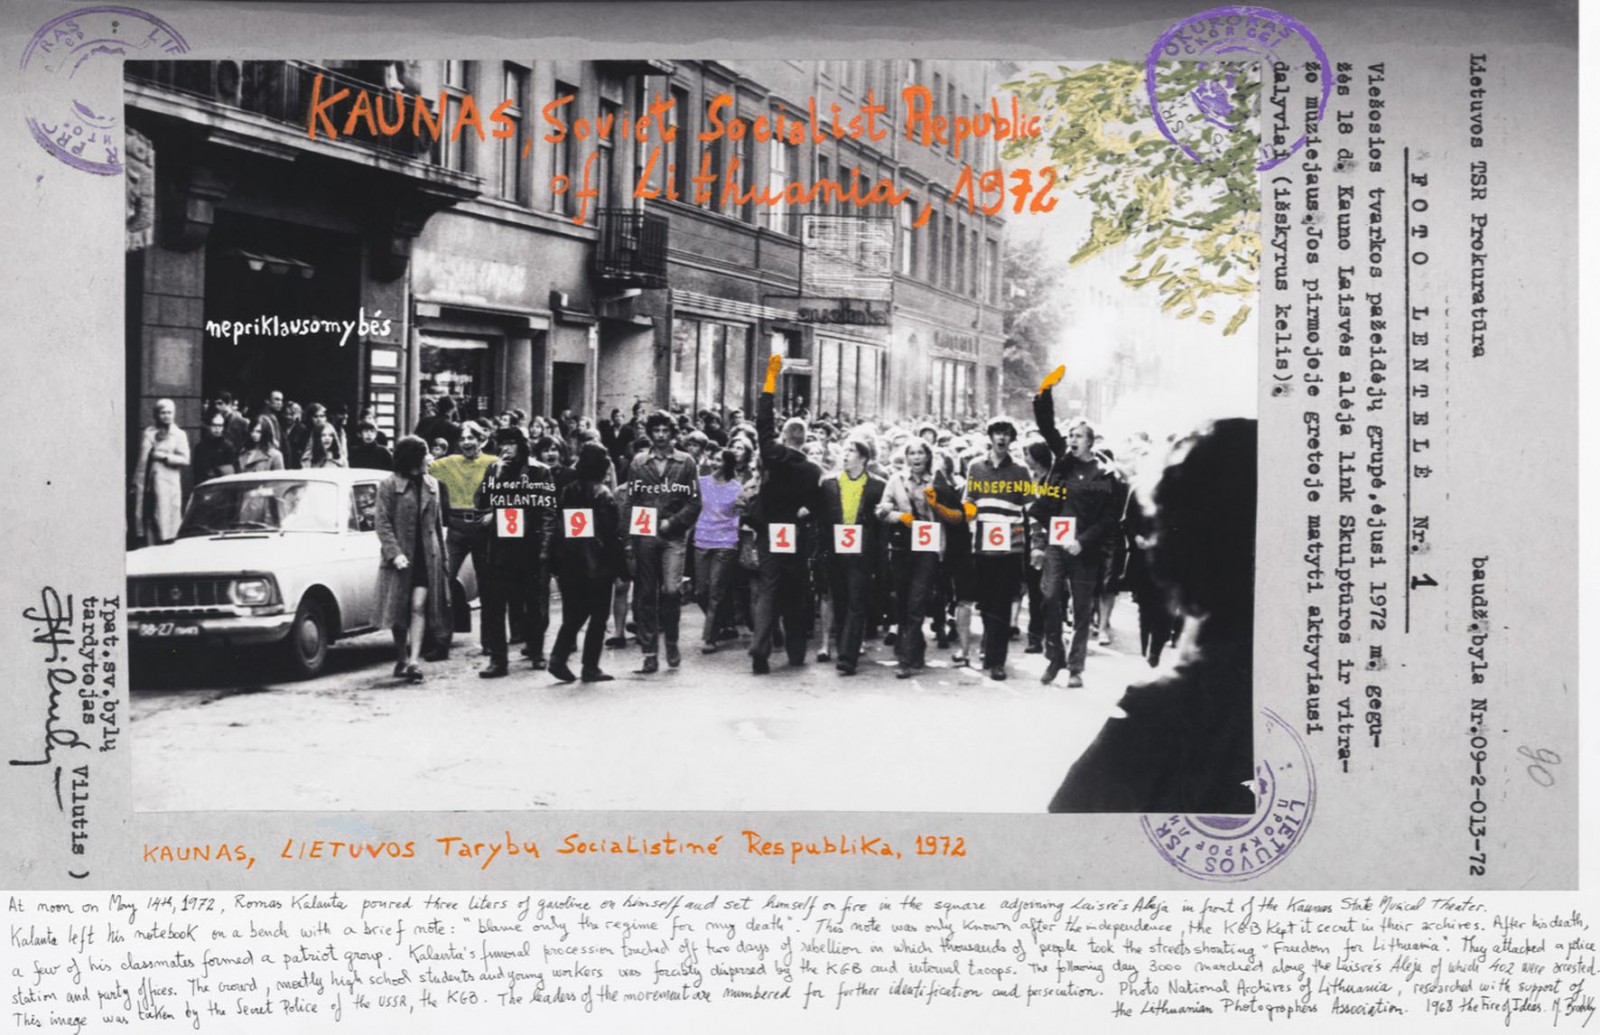 KAUNAS, Soviet Socialist Republic
of Lithuania, 1972
nepriklausomybés
¡Honor Romas
KALANTAS!
¡Freedom!
INDEPENDENCE!
8
9
4
1
3
5
6
7
38-27
Lietuvos TSR Prokuratūra
baudž.byla Nr.09-2-013-72
FOTO LENTELĖ Nr. 1
Viešosios tvarkos pažeidėjų grupė,ėjusi 1972 m. gegu-
žės 18 d. Kauno Laisvės alėja link Skulptūros ir vitra-
žo muziejaus.Jos pirmojoje gretoje matyti aktyviausi
dalyviai (išskyrus kelis).
90
Ypat.sv.bylų
tardytojas
Vilutis )
LIETUVOS TSR
KAUNAS, LIETUVOS Tarybu Socialistiné Respublika, 1972
At noon on May 14th, 1972, Romas Kalanta poured three liters of gasoline on himself and set himself on fire in the square adjoining Laisré's Aleja in front of the Kaunas State Musical Theater.
Kalanta left his notebook on a bench with a brief note: "blame only the regime for my death". This note was only known after the independence, the KGB kept it secret in their archives. After his death,
a few of his classmates formed a patriot group. Kalanta's funeral procession touched off two days of rebellion in which thousands of people took the streets shouting "Freedom for Lithuania". They attacked a police
station and party offices. The crowd, mostly high school students and young workers was forcibly dispersed by the KGB and internal troops. The following day 3000 marched along the Laisre's Aleja of which 402 were arrested.
This image was taken by the Secret Police of the USSR, the KGB. The leaders of the movement are numbered for further identification and persecution. Photo National Archives of Lithuania, researched with support of
the Lithuanian Photographers Association. 1968 the Fire of Ideas. M. Brodsky